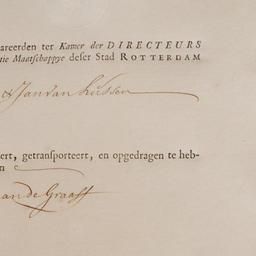 areerden ter Kamer der DIRECTEURS
tie Maatschappye deser Stad ROTTERDAM
& Jan van Lussen
eert, getransporteert, en opgedragen te heb-
n
van de Graaff